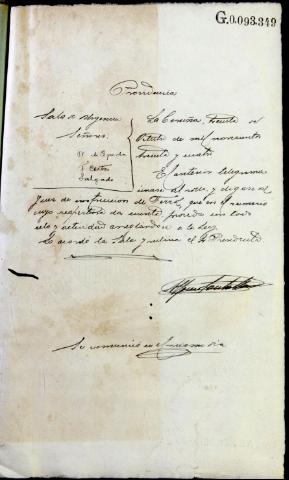 G.0.093.349
Providencia
Sala de Urgencia
Señores.
La Coruña, treinta de
Octubre de mil novecientos
treinta y cuatro
Castro
Salgado
El anterior telegrama
unase al rollo, y dígase al
Juez de instrucción de Ferrol, que en el sumario
cuyo da cuenta, proceda con todo
celo y actividad a la Ley.
Lo acordó la Sala y rubrica el Sr Presidente
Se comunica en el mismo día